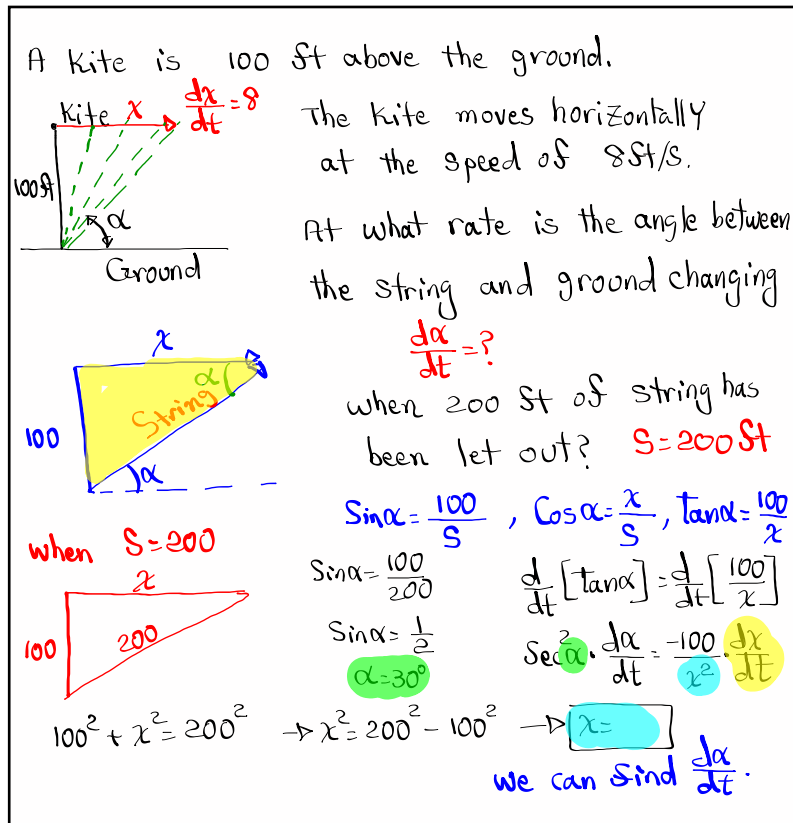 A Kite is 100 ft above the ground.
Kite x dx/dt = 8
The Kite moves horizontally
at the speed of 8ft/s.
100ft
α
Ground
At what rate is the angle between
the string and ground changing
dα/dt = ?
x
α
String
100
α
when 200 ft of string has
been let out? S=200ft
Sinα = 100/S , Cosα = x/S , tanα = 100/x
when S=200
x
100
200
Sinα = 100/200
Sinα = 1/2
α=30°
d/dt [tanα] = d/dt [100/x]
Sec²α · dα/dt = -100/x² · dx/dt
100² + x² = 200² → x² = 200² - 100² → x=
we can find dα/dt.